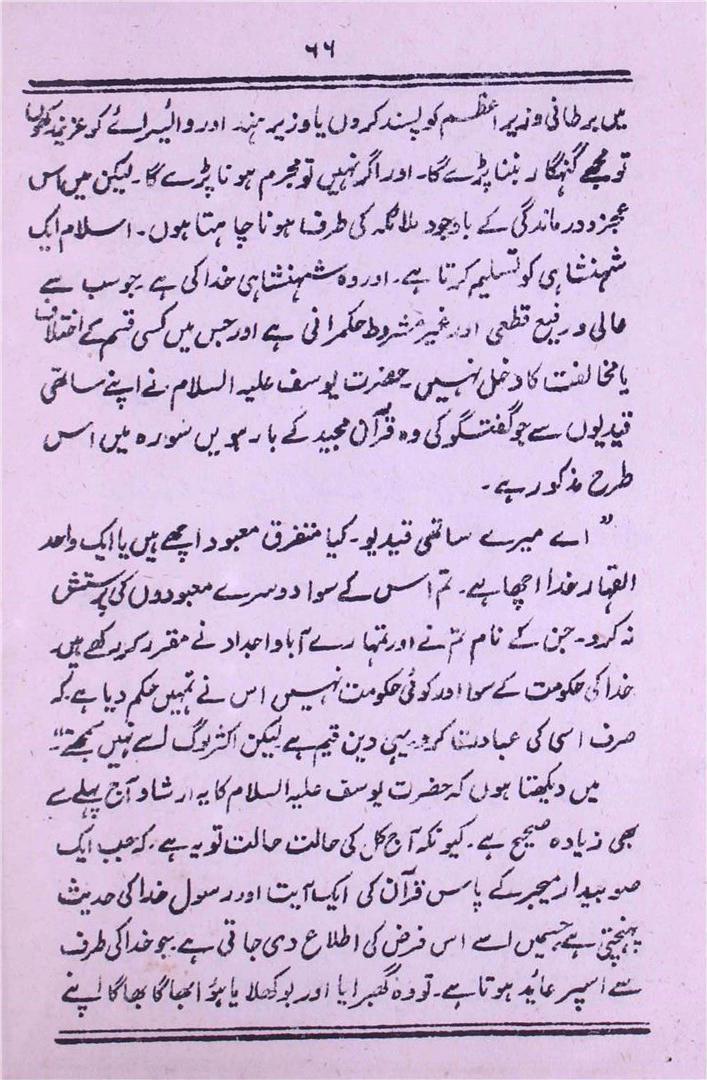 ۶۶
میں برطانی وزیر اعظم کو پسند کروں یا وزیر ہند اور وائسرائے کو عزیز رکھوں
تو مجھے گنہگار بننا پڑے گا۔ اور اگر نہیں تو مجرم ہونا پڑے گا۔ لیکن میں اس
عجز و درماندگی کے باوجود ملائکہ کی طرف ہونا چاہتا ہوں۔ اسلام ایک
شہنشاہی کو تسلیم کرتا ہے۔ اور وہ شہنشاہی خدا کی ہے جو سب سے
عالی و رفیع قطعی اور غیر مشروط حکمرانی ہے اور جس میں کسی قسم کے اختلاف
یا مخالفت کا دخل نہیں۔ حضرت یوسف علیہ السلام نے اپنے ساتھی
قیدیوں سے جو گفتگو کی وہ قرآن مجید کے بارہویں سورہ میں اس
طرح مذکور ہے۔
"اے میرے ساتھی قیدیو۔ کیا متفرق معبود اچھے ہیں یا ایک واحد
القہار خدا اچھا ہے۔ تم اس کے سوا دوسرے معبودوں کی پرستش
نہ کرو۔ جن کے نام تم نے اور تمہارے آبا و اجداد نے مقرر کر رکھے ہیں۔
خدا کی حکومت کے سوا اور کوئی حکومت نہیں اس نے تمہیں حکم دیا ہے کہ
صرف اسی کی عبادت کرو۔ یہی دین قیم ہے لیکن اکثر لوگ اسے نہیں سمجھتے"۔
میں دیکھتا ہوں کہ حضرت یوسف علیہ السلام کا یہ ارشاد آج پہلے سے
بھی زیادہ صحیح ہے۔ کیونکہ آج کل کی حالت حالت تو یہ ہے۔ کہ جب ایک
صوبیدار میجر کے پاس قرآن کی ایک آیت اور رسول خدا کی حدیث
پہنچتی ہے جسمیں اسے اس فرض کی اطلاع دی جاتی ہے۔ جو خدا کی طرف
سے اسپر عاید ہوتا ہے۔ تو وہ گھبرایا اور بوکھلایا ہوا بھاگا بھاگا اپنے